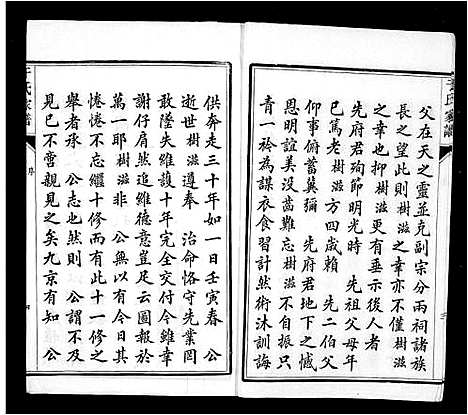 父在天之靈並克副宗分兩祠諸族
長之望此則樹滋之幸亦不僅樹滋
之幸也抑滋更有垂示後人者
先府君殉節明光時 先祖父母年
已篤老樹滋方四歲賴 先二伯父
仰事俯蓄冀彌 先府君地下之憾
恩明誼美没齒難忘樹滋不自振只
青一衿為謀衣食習會計術沐訓誨
供奔走三十年如一日壬寅春 公
逝世樹滋遵奉 治命恪守先業罔
敢墜失維護十年完全交付今雖幸
謝仔肩然追維德意豈足云圖報於
萬一耶樹滋非 公無以有今日其
惓惓不忘繼十修而有此十一修之
舉者承 公志也然則 公謂不及
見已不啻親見之矣九京有知 公
氏家譜
序